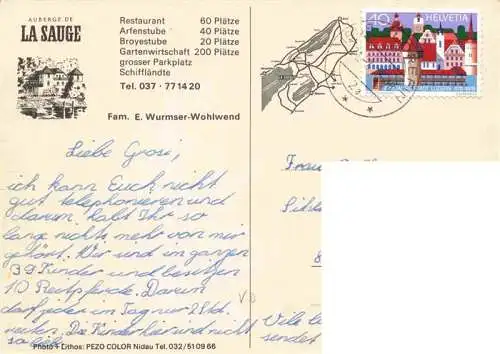 AUBERGE DE
LA SAUGE
Restaurant 60 Plätze
Arfenstube 40 Plätze
Broyestube 20 Plätze
Gartenwirtschaft 200 Plätze
grosser Parkplatz
Schifflände
Tel. 037 · 77 14 20
Fam. E. Wurmser-Wohlwend
40 HELVETIA
Liebe Grosi,
ich kann Euch nicht
gut telephonieren und
darum habt Ihr so
lange nichts mehr von mir
gehört. Wir sind im ganzen
Kinder und besitzen
10 Reitpferde. Darum
darf jeder im Tag nur 2 Std.
reiten. Die Kinder hier und nicht
so
Frau
Viele
sendet
Photo + Lithos: PEZO COLOR Nidau Tel. 032/51 09 66